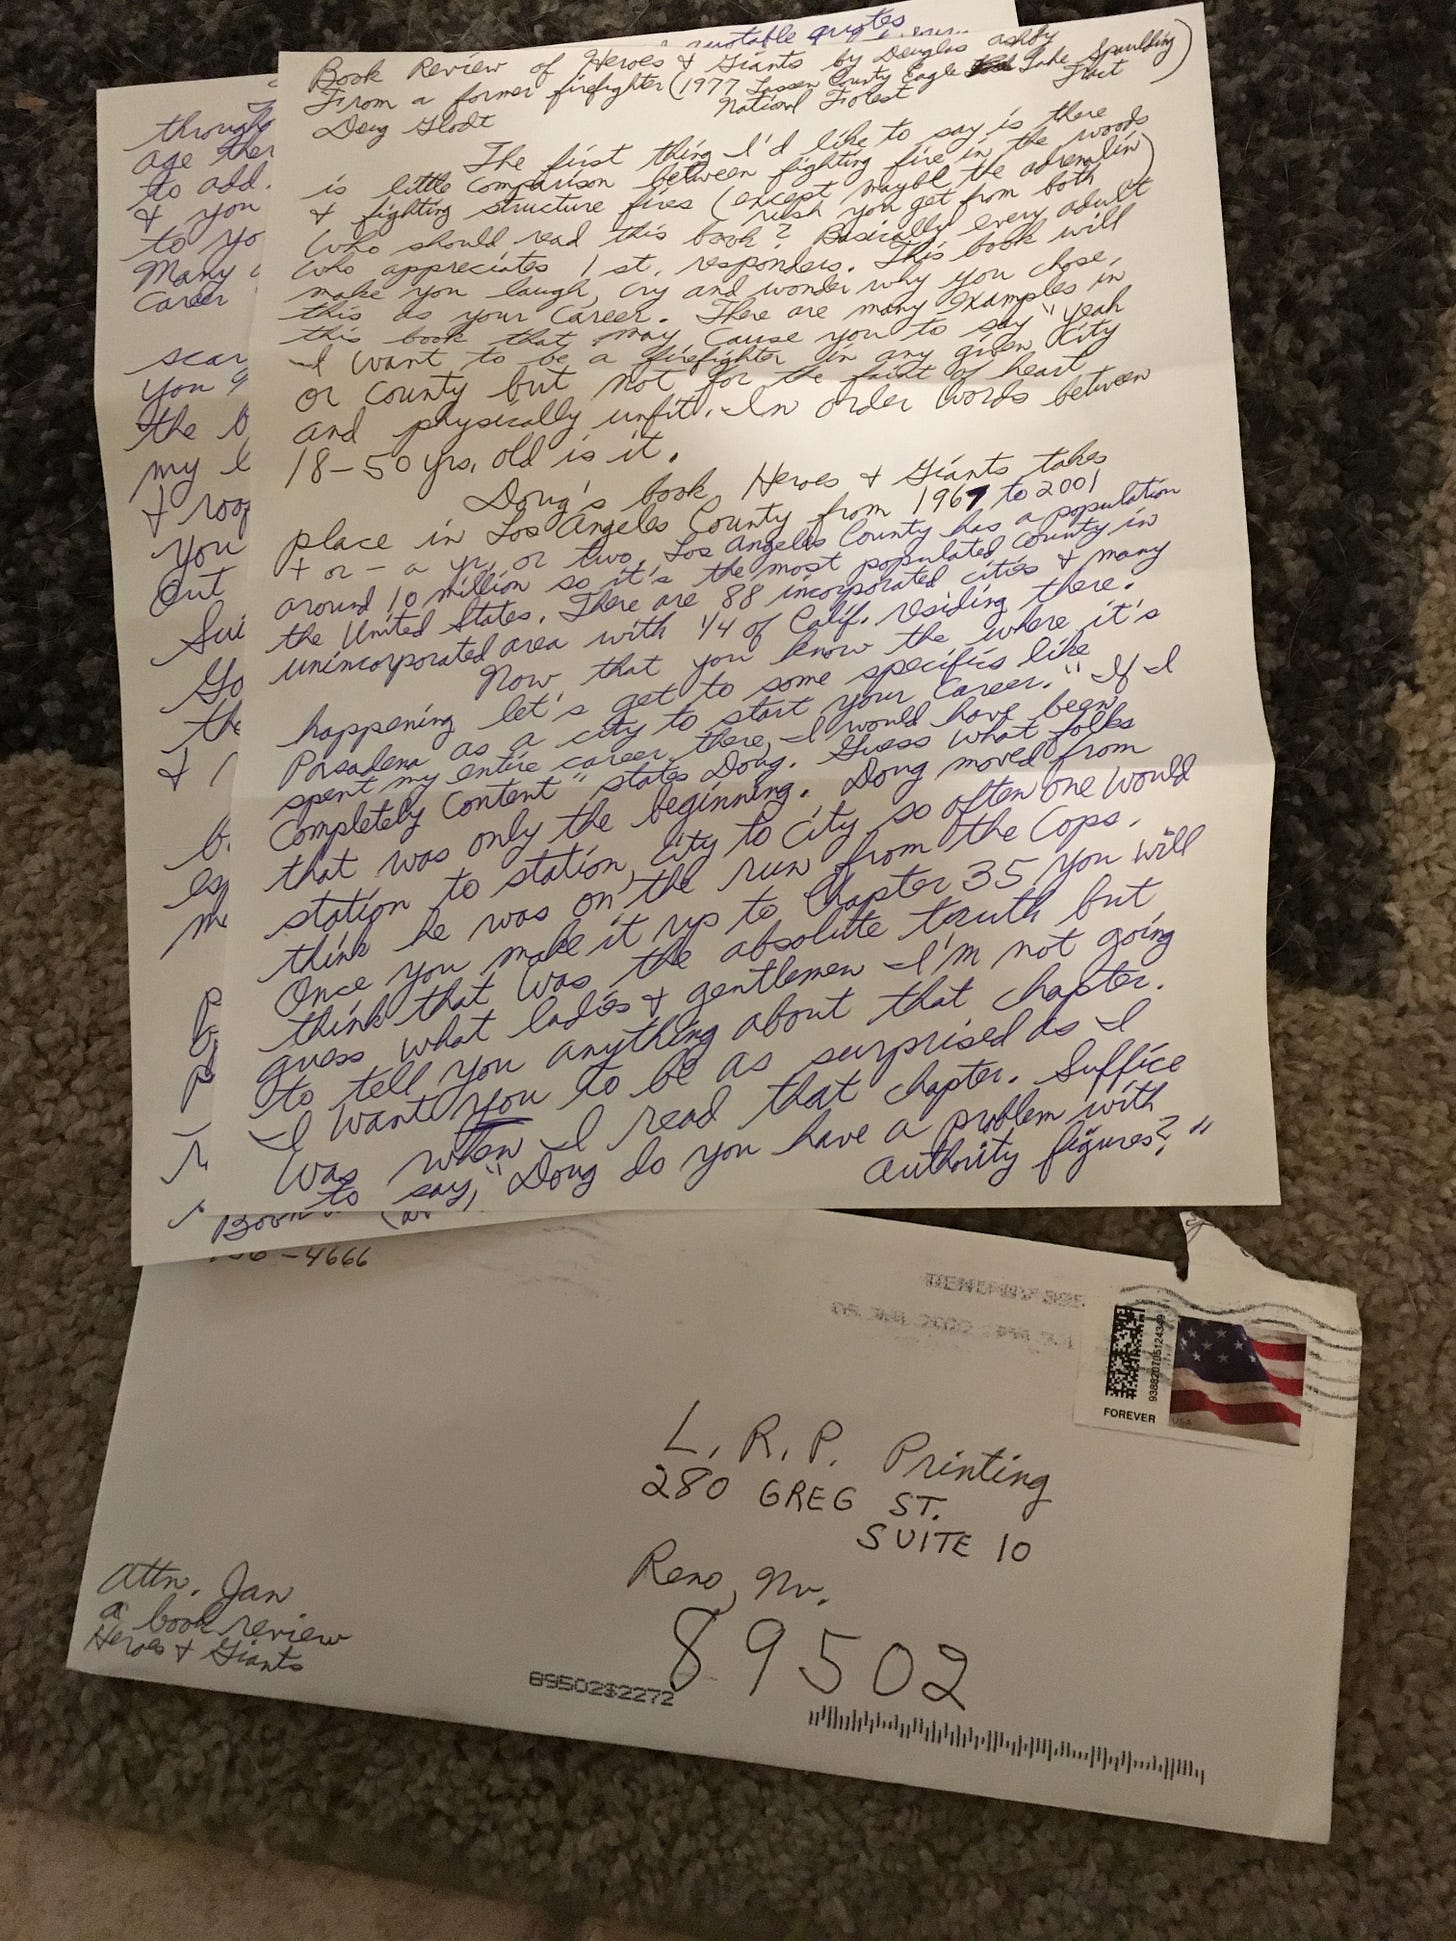 quotable quotes
Book Review of Heroes & Giants by Douglas Ashby
From a former firefighter (1977 Lassen County Eagle Lake Spaulding Tract)
Doug Glodt National Forest
The first thing I'd like to say is there
is little comparison between fighting fire in the woods
& fighting structure fires (except maybe the adrenalin
rush you get from both)
Who should read this book? Basically every adult
who appreciates 1st. responders. This book will
make you laugh, cry and wonder why you chose,
this as your career. There are many examples in
this book that may cause you to say "yeah
I want to be a firefighter in any given city
or county but not for the faint of heart
and physically unfit. In order words between
18-50 yrs, old is it.
Doug's book, Heroes & Giants takes
place in Los Angeles County from 1967 to 2001
+ or - a yr, or two, Los Angeles County has a population
around 10 million so it's the most populated county in
the United States. There are 88 incorporated cities & many
unincorporated area with 1/4 of Calif. residing there.
Now that you know the where it's
happening let's get to some specifics like
Pasadena as a city to start your career. "If I
spent my entire career there, I would have been
completely content" states Doug. Guess what folks
that was only the beginning. Doug moved from
station to station, city to city so often one would
think he was on the run from the cops.
Once you make it up to Chapter 35 you will
think that was the absolute truth but
guess what ladies & gentlemen I'm not going
to tell you anything about that chapter.
I want you to be as surprised as I
was when I read that chapter. Suffice
to say, "Doug do you have a problem with
authority figures?"
through
age ther
to add.
& you
to yo
Many
career
scar
you
the b
my l
& roof
you
out
Sui
Go
the
&
b
es
me
-4666
FOREVER
USA
9388207051243
L.R.P. Printing
280 GREG ST.
SUITE 10
Reno, Nv.
89502
Attn. Jan
a book review
Heroes & Giants
89502$2272